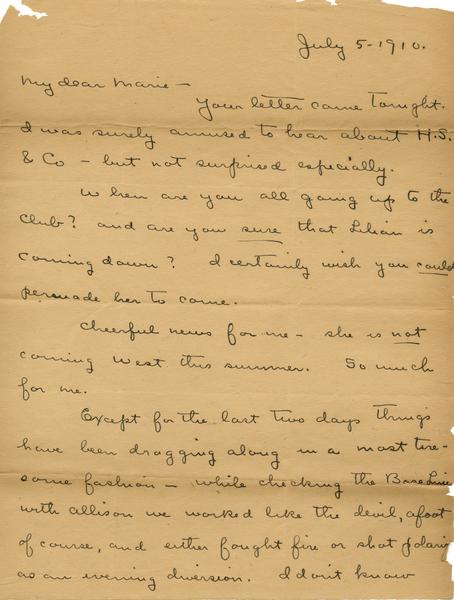 July 5-1910.
My dear Marie —
Your letter came tonight.
I was surely amused to hear about H.S.
& Co — but not surprised especially.
When are you all going up to the
Club? and are you sure that Lilian is
coming down? I certainly wish you could
persuade her to come.
Cheerful news for me — she is not
coming West this summer. So much
for me.
Except for the last two days things
have been dragging along in a most tire-
some fashion — while checking the Base Line
with Allison we worked like the devil, afoot
of course, and either fought fire or shot Polaris
as an evening diversion. I don't know